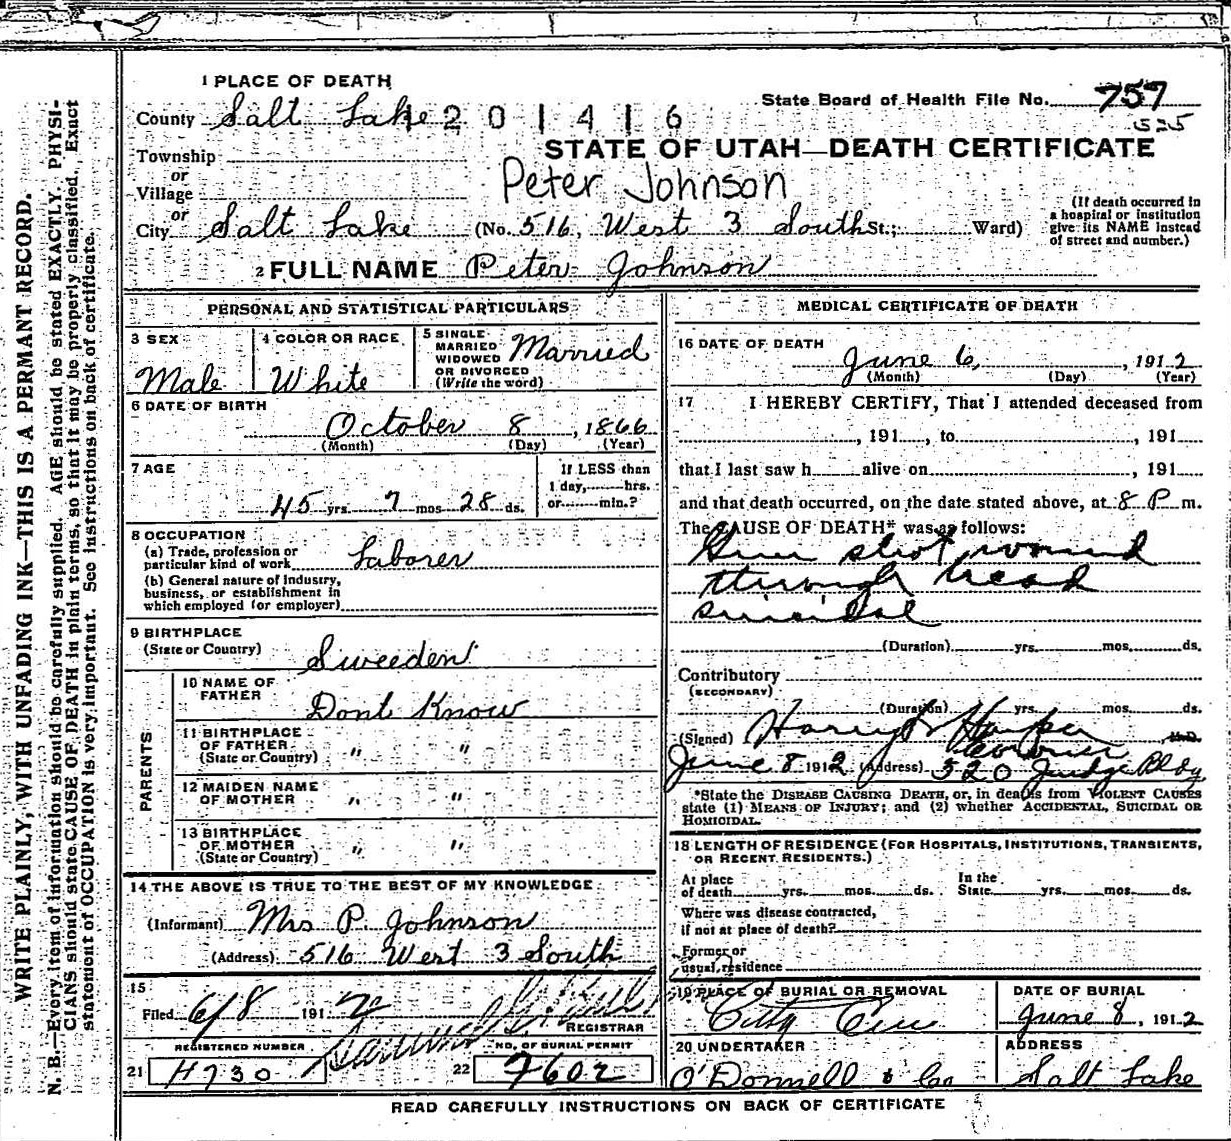 1 PLACE OF DEATH
County Salt Lake 1201416
State Board of Health File No. 757
525
Township
or
Village
or
City Salt Lake (No. 516, West 3 South St.; Ward)
STATE OF UTAH—DEATH CERTIFICATE
Peter Johnson
(If death occurred in
a hospital or institution
give its NAME instead
of street and number.)
2 FULL NAME Peter Johnson
PERSONAL AND STATISTICAL PARTICULARS
3 SEX
Male
4 COLOR OR RACE
White
5 SINGLE
MARRIED
WIDOWED
OR DIVORCED
(Write the word)
Married
6 DATE OF BIRTH
October 8, 1866
(Month) (Day) (Year)
7 AGE
45 yrs. 7 mos 28 ds.
If LESS than
1 day, hrs.
or min.?
8 OCCUPATION
(a) Trade, profession or
particular kind of work Laborer
(b) General nature of Industry,
business, or establishment in
which employed (or employer)
9 BIRTHPLACE
(State or Country) Sweeden
PARENTS
10 NAME OF
FATHER Dont Know
11 BIRTHPLACE
OF FATHER
(State or Country) " "
12 MAIDEN NAME
OF MOTHER " "
13 BIRTHPLACE
OF MOTHER
(State or Country) " "
14 THE ABOVE IS TRUE TO THE BEST OF MY KNOWLEDGE
(Informant) Mrs P. Johnson
(Address) 516 West 3 South
15
Filed 6/8 1912
REGISTRAR
REGISTERED NUMBER
21 4730
NO. OF BURIAL PERMIT
22 7602
MEDICAL CERTIFICATE OF DEATH
16 DATE OF DEATH
June 6, , 1912
(Month) (Day) (Year)
17 I HEREBY CERTIFY, That I attended deceased from
, 191 , to , 191
that I last saw h alive on , 191
and that death occurred, on the date stated above, at 8 P m.
The CAUSE OF DEATH* was as follows:
Gun shot wound
through head
suicidal
(Duration) yrs. mos. ds.
Contributory
(SECONDARY)
(Duration) yrs. mos. ds.
(Signed) Harry S Harper M.D.
Coroner
June 8 1912 (Address) 520 Judge Bldg
*State the DISEASE CAUSING DEATH, or, in deaths from VIOLENT CAUSES
state (1) MEANS OF INJURY; and (2) whether ACCIDENTAL, SUICIDAL OR
HOMICIDAL.
18 LENGTH OF RESIDENCE (FOR HOSPITALS, INSTITUTIONS, TRANSIENTS,
OR RECENT RESIDENTS.)
At place
of death yrs. mos. ds.
In the
State yrs. mos. ds.
Where was disease contracted,
if not at place of death?
Former or
usual residence
19 PLACE OF BURIAL OR REMOVAL
City Cem
DATE OF BURIAL
June 8, 1912
20 UNDERTAKER
O'Donnell & Co
ADDRESS
Salt Lake
READ CAREFULLY INSTRUCTIONS ON BACK OF CERTIFICATE
WRITE PLAINLY, WITH UNFADING INK—THIS IS A PERMANT RECORD.
N. B.—Every item of information should be carefully supplied. AGE should be stated EXACTLY. PHYSI-
CIANS should state CAUSE OF DEATH in plain terms, so that it may be properly classified. Exact
statement of OCCUPATION is very important. See instructions on back of certificate.